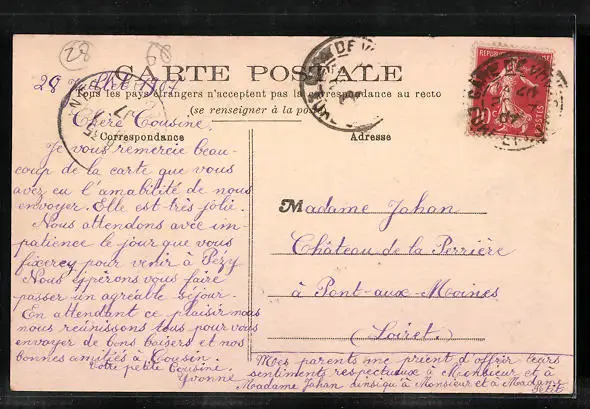 28
CARTE POSTALE
28 Juillet 1907
Tous les pays étrangers n'acceptent pas la correspondance au recto
(se renseigner à la poste
Chère Cousine.
Correspondance
Je vous remercie beau-
coup de la carte que vous
avez eu l'amabilité de nous
envoyer. Elle est très jolie.
Nous attendons avec im-
patience le jour que vous
fixerez pour venir à Pezy
Nous espérons vous faire
passer un agréable séjour.
En attendant ce plaisir mas
nous réunissons tous pour vous
envoyer de bons baisers et nos
bonnes amitiés à Cousin.
Votre petite Cousine.
Yvonne
Adresse
Madame Jahan
Château de la Perrière
à Pont-aux-Moines
(Loiret)
Mes parents me prient d'offrir leurs
sentiments respectueux à Monsieur et à
Madame Jahan ainsi qu'à Monsieur et à Madame
POSTES
10